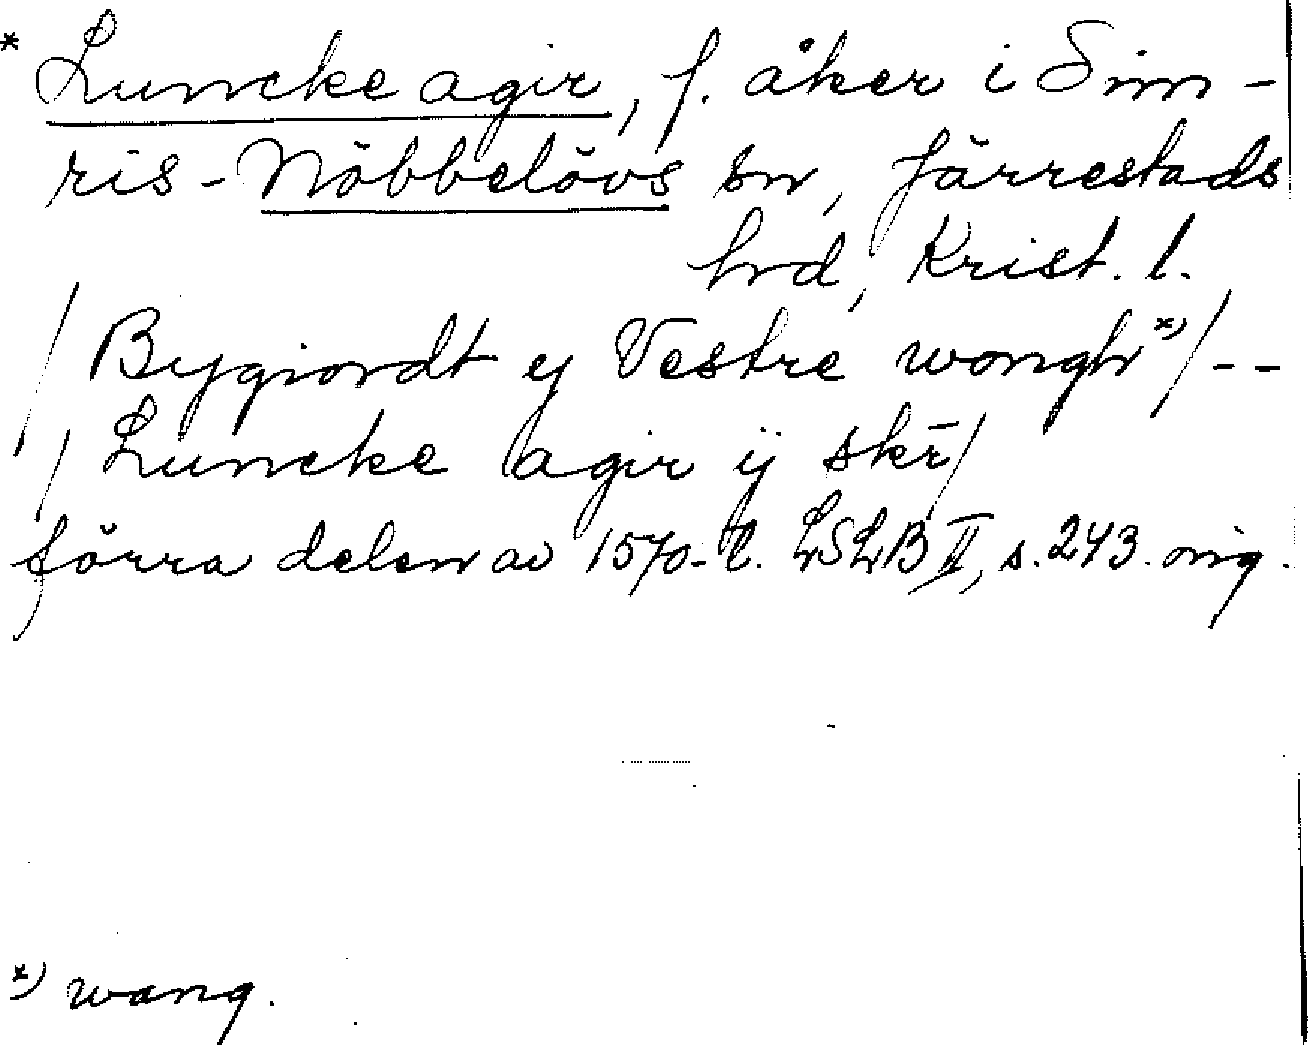 * Luncke agir, f. åker i Sim-
ris-Nöbbelövs sn, Järrestads
hrd, Krist. l.
/ Bygiordt ij Vestre wongh *) / --
/ Luncke agir ij skr̄ /
förra delen av 1570-t. LSLB II, s. 243. orig.
*) wang.